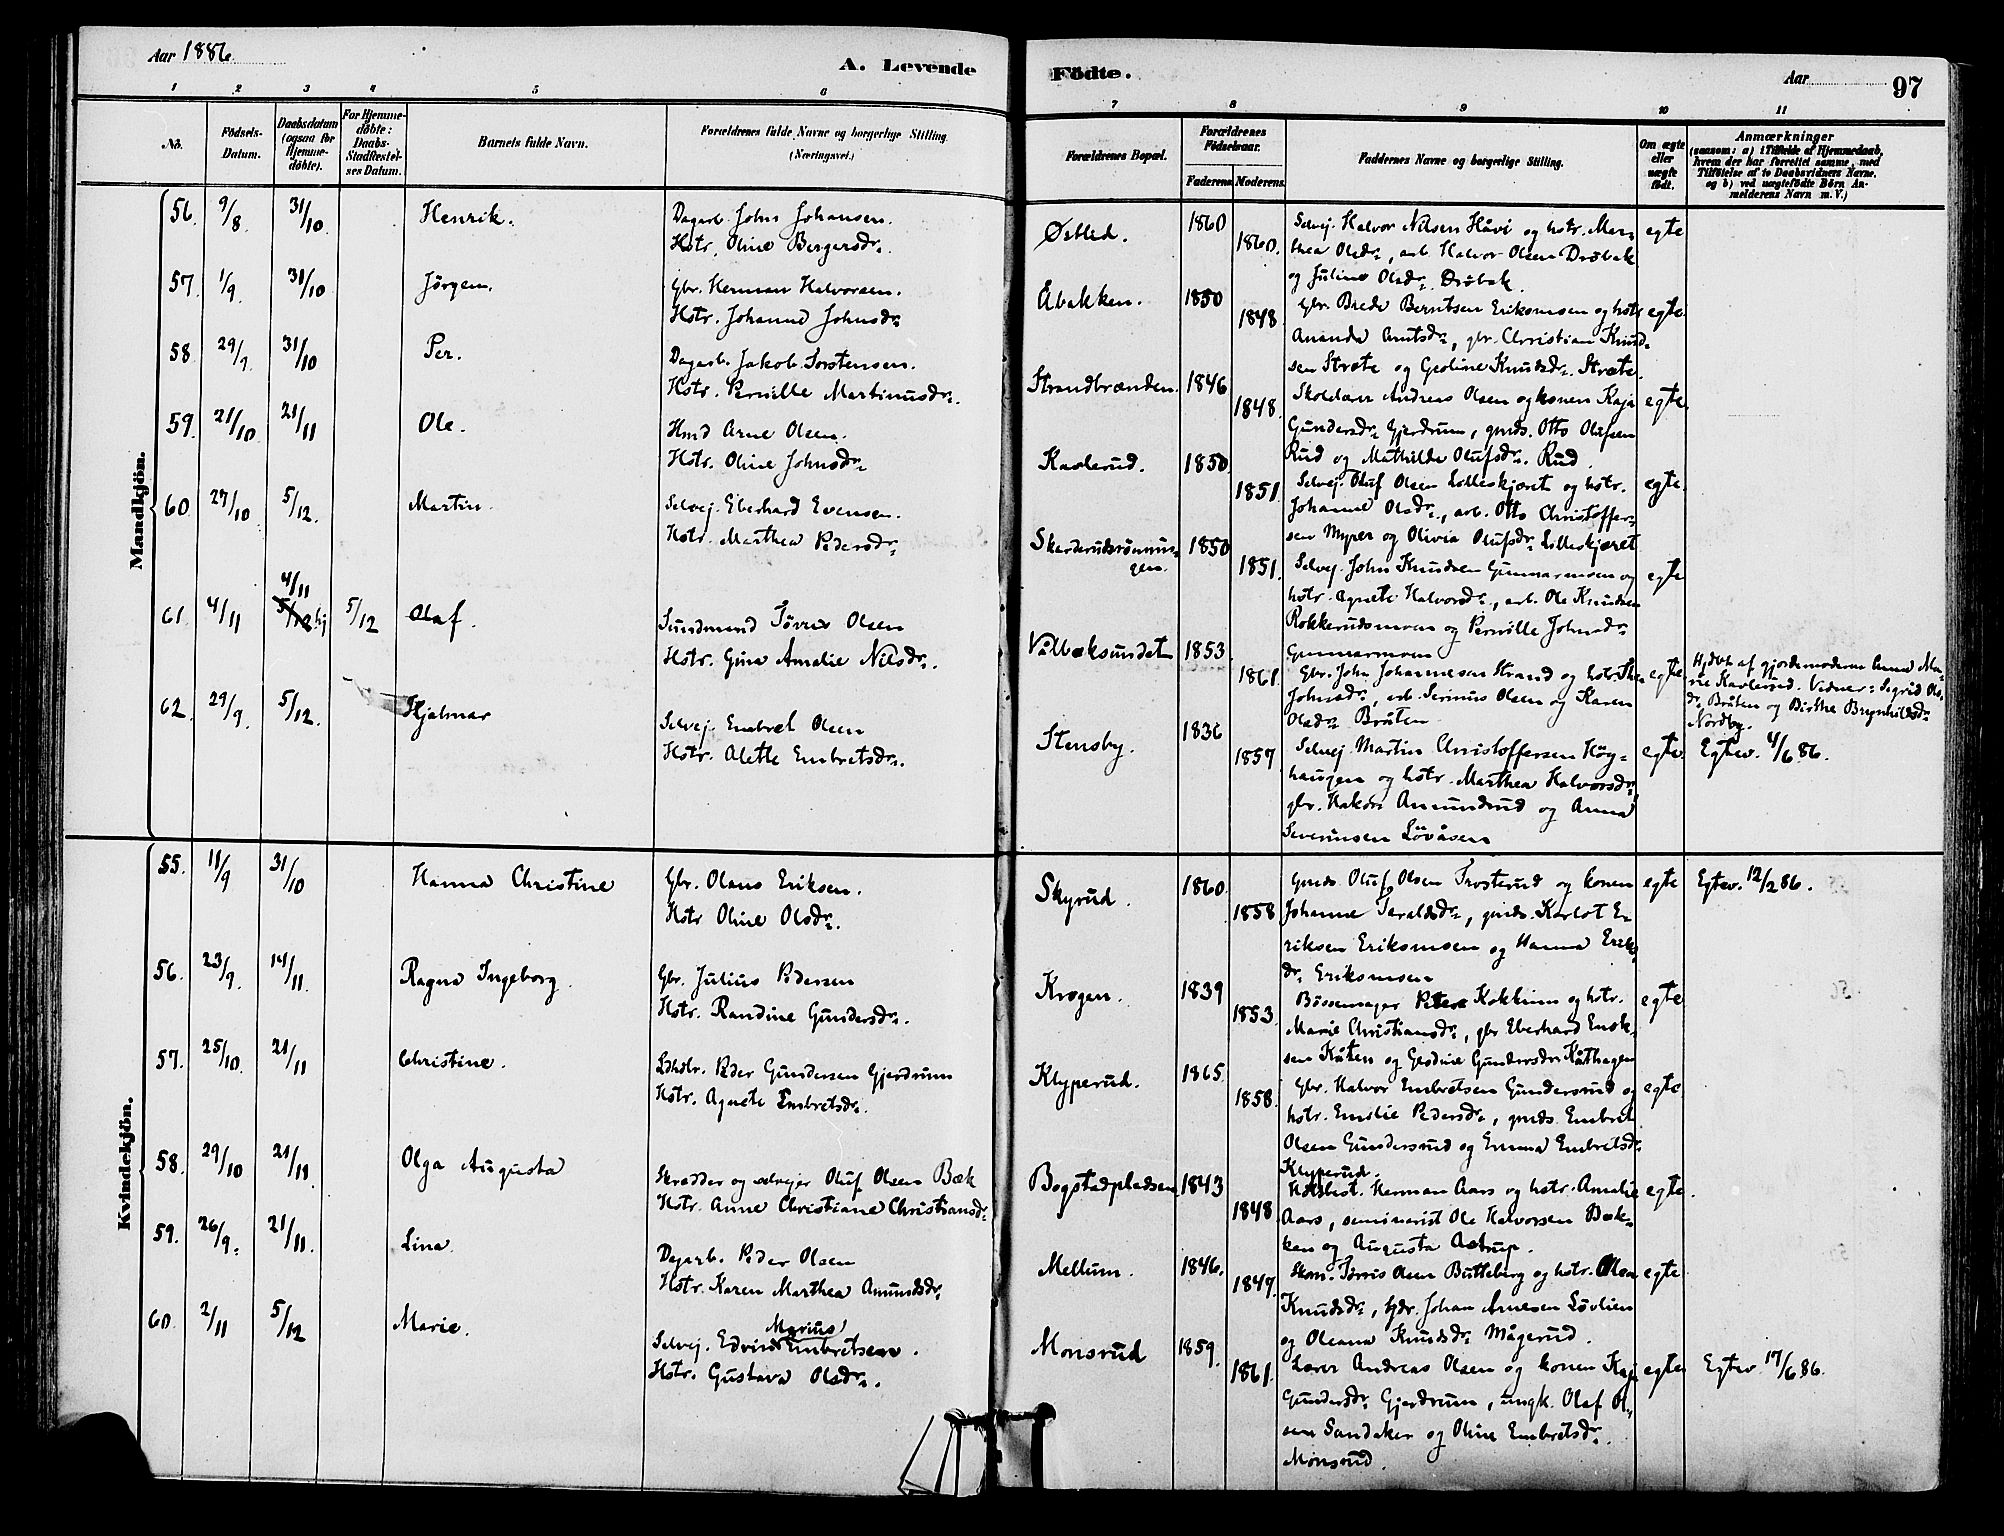 Aar 1886.
A. Levende
1 2 3 4 5 6
No.
Födsels-Datum.
Daabsdatum (ogsaa for Hjemmedøbte).
For Hjemmedøbte: Daabs-Stadfæstelses Datum.
Barnets fulde Navn.
Forældrenes fulde Navne og borgerlige Stilling.
(Næringsvei.)
Mandkjön.
56. 9/8 31/10 Henrik. Dagarb. Johs Johansen.
Hstr. Oline Bergersdr.
57. 1/9 31/10 Jörgen. Gbr. Herman Halvorsen.
Hstr. Johanne Johnsdr.
58. 29/9. 31/10 Per. Dagarb. Jakob Torstensen.
Hstr. Pernille Martinusdr.
59. 21/10 21/11 Ole. Hmd Arne Olsen.
Hstr. Oline Johnsdr.
60. 27/10 5/12. Martin. Selvej. Eberhard Evensen.
Hstr. Marthea Pedersdr.
4/11
61. 4/11 5/12 hj 5/12 Olaf. Sundmand Sövren Olsen
Hstr. Gina Amalie Nilsdr.
62. 29/9. 5/12. Hjalmar Selvej. Embret Olsen
Hstr. Alette Embretsdr.
Kvindekjön.
55. 11/9 31/10 Hanna Christine Gbr. Olaus Eriksen.
Hstr Oline Olsdr.
56. 23/9. 14/11. Ragna Ingeborg. Gbr. Julius Pedersen
Hstr. Randine Gundersdr.
57. 25/10. 21/11 Christine. Ldhdlr. Peder Gundersen Gjerdrum
Hstr. Agnete Embretsdr.
58. 29/10 21/11 Olga Augusta Skrædder og selvejer Oluf Olsen Bæk
Hstr. Anne Christiane Christiansdr.
59. 26/9. 21/11. Lina. Dagarb. Peder Olsen
Hstr. Karen Marthea Amundsdr.
60. 2/11 5/12 Marie. Selvej. Edvin Marius Embretsen.
Hstr. Gustava Olsdr.
Födte.
Aar 97
7 8 9 10 11
Forældrenes Bopæl.
Forældrenes Födselsaar.
Faderens. Moderens.
Faddernes Navne og borgerlige Stilling.
Om ægte eller uægte födt.
Anmærkninger
(saasom: a) i Tilfælde af Hjemmedaab, hvem der har forrettet samme, med Tilföielse af to Daabsvidners Navne. og b) ved uægtefödte Börn Anmelderens Navn m. V.)
Østlid. 1860 1860. Selvej. Halvor Nilsen Håvi og hstr. Mar- egte
thea Olsdr., arb. Halvor Olsen Drøbak
og Juline Olsdr. Drøbak.
Åbakken. 1850 1848. Gbr. Brede Berntsen Eriksmoen og hstr egte.
Amanda Arntsdr., gbr. Christian Knud-
sen Stræte og Geoline Knudsdr. Stræte.
Strandbrænden. 1846 1848. Skolelærer Andreas Olsen og konen Kaja egte.
Gundersdr. Gjerdrum, gmds. Otto Olufsen
Rud og Mathilde Olufsdr. Rud.
Kaalerud. 1850. 1851. Selvej. Oluf Olsen Lilleskjæret og hstr. egte.
Johanne Olsdr., arb. Otto Christoffer-
sen Myrer og Olivia Olufsdr. Lilleskjæret
Skarderudsrønnin-
gen. 1850 1851. Selvej. John Knudsen Gunnarsmoen og egte
hstr. Agnete Halvorsdr., arb. Ole Knudsen
Rokkerudsmoen og Pernille Johnsdr.
Gunnarsmoen
Vålbæksundet 1853. 1861. Gbr. John Johannesen Strand og hstr. Thea egte.
Johnsdr., arb. Serinus Olsen og Karen
Olsdr. Bråten
Hjdbt. af gjordemoderen Anna Ma-
rie Kaalerud. Vidner: Sigrid Ols-
dr. Bråten og Birthe Brynhildsdr.
Nordby.
Stensby. 1836 1857 Selvej. Martin Christoffersen Høg- egte. Egtev. 4/6 86.
haugen og hstr. Marthea Halvorsdr.
gbr. Hakon Amundrud og Anna
Severinsen Lövåsen
Skyrud. 1860. 1858 Gmds. Oluf Olsen Trosterud og konen egte Egtev. 12/2 86.
Johanne Taraldsdr., gmds. Karlot E-
riksen Eriksmoen og Hanna Eriks-
dr. Eriksmoen
Krogen. 1839 1853. Bössemager Peter Kokkim og hstr. egte
Marie Christiansdr., gbr Eberhard Enok-
sen Kåten og Geoline Gundersdr. Kåthagen
Klyperud. 1865. 1858. Gbr. Halvor Embretsen Gundersrud og egte.
hstr. Emilie Pedersdr., gmds. Embret
Olsen Gundersrud og Emma Embretsdr.
Klyperud.
Bogstadpladsen 1843 1848. Herman Aars og hstr. Amalie egte.
Aars, seminarist Ole Halvorsen Bæk-
ken og Augusta Astrup.
Mellum. 1846. 1849. Skom. Tørris Olsen Butteberg og hstr. Olea egte
Knudsdr., Johan Arnesen Lövlien
og Oleana Knudsdr. Mågerud.
Monsrud 1859. 1861. Lærer Andreas Olsen og konen Kaja egte Egtev. 17/6 86.
Gundersdr. Gjerdrum, ungk. Olaf Ol-
sen Sandaker og Oline Embretsdr.
Monsrud.